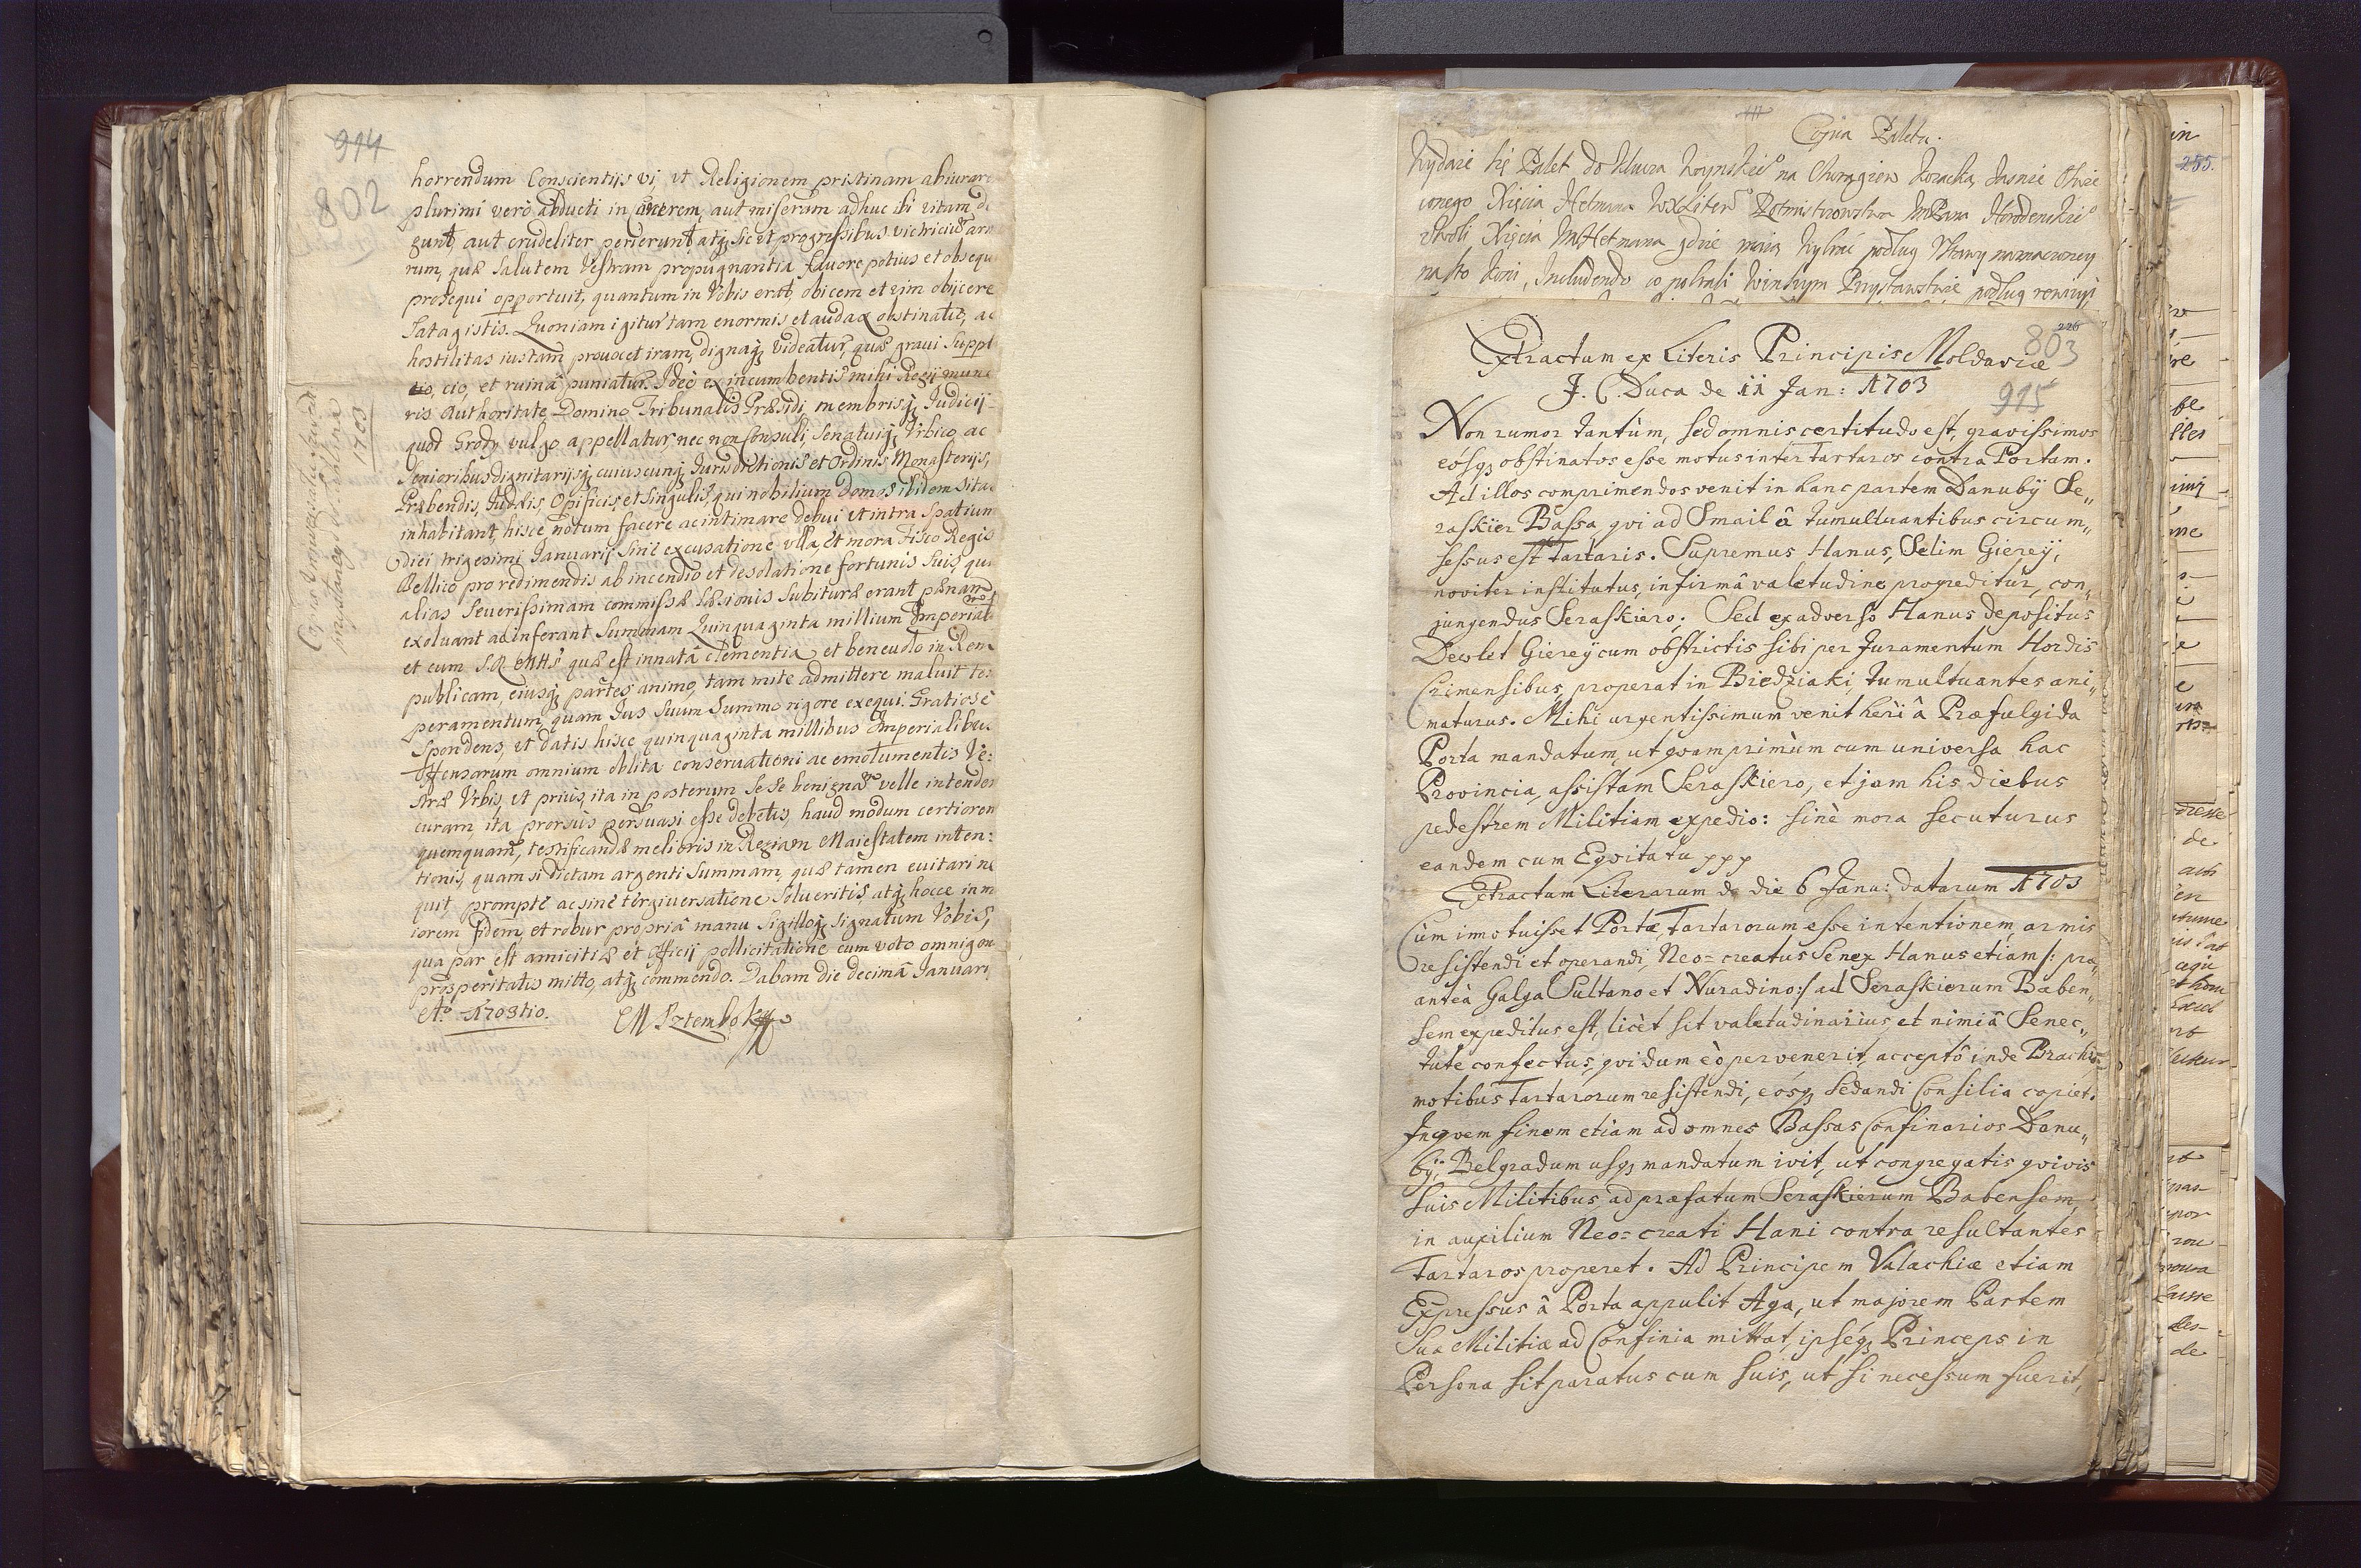 914
802
horrendum Conscientijs vi, vt Religionem pristinam abiurare
plurimi verò abducti in carcerem, aut miseram adhuc ibi vitam de
gunt, aut crudeliter perierunt, atq; sic et progressibus victriciũ armo
rum, quæ salutem Vestram propugnantia fauore potius et obsequi
prosequi opportuit, quantum in Vobis erat, obicem et vim obijcere
Satagistis. Quoniam igitur tam enormis et audax obstinatio, ac
hostilitas iustam prouocet iram, dignaq; videatur, quæ graui Suppl
cio, et ruinâ puniatur. Ideò ex incumbentis mihi Regij mune
ris Authoritate Domino Tribunalis Præsidi, membrisq; Iudicij
quod Grody vulgo appellatur, nec non Consuli, Senatuiq; Vrbico, ac
Senioribus dignitarijsq; cuiuscunq; Iurisdictionis et Ordinis Monasterijs,
Præbendis, Iudæis, Opificis, et Singulis, qui nobilium domos ibidem sitas
inhabitant, hisce notum facere ac intimare debui vt intra Spatium
diei trigesimi Ianuarij sinè excusatione vlla, et mora Fisco Regis
Bellico pro redimendis ab incendio et desolatione fortunis Suis, qui
alias Seuerissimam commissæ læsionis Subituræ erant pænam
exoluant ac inferant Summam Quinquaginta millium Imperial
et cum S.R. Mttis quæ est innatâ clementia, et beneuolo in Rem
publicam, eiusq; partes animo, tam mite admittere maluit te:
peramentum, quam Ius Suum Summo rigore exequi. Gratiosè
Spondens, vt datis hisce quinquaginta millibus Imperialibus
Offensarum omnium oblita conseruationi ac emolumentis Ve:
stræ Vrbis, vt prius, ita in posterum Sese benignè velle intender
curam, ita prorsùs persuasi esse debetis, haud modum certiorem
quemquam, testificandæ melioris in Regiam Maiestatem inten:
tionis, quam si dictam argenti Summam, quæ tamen euitari ne
quit, promptè ac sinè tergiuersatione Solueritis, atq; hocce in m
iorem fidem, et robur propriâ manu Sigilloq; signatum Vobis,
qua par est amicitiæ et officij pollicitatione cum voto omnigen
prosperitatis mitto, atq; commendo. Dabam die decimâ Ianuari
Ao. 1703tio.
M Sztembok
1703
Copia Paletu.
Wydaie się Palet do na Chorągiew Kozacką
Xięcia Hetmana
Xięcia JmHetmana gdzie maią wybrać podług
na sto koni, Includendo co podług rewizyi
226
803
Extractum ex Literis Principis Moldaviæ
J. C. Duca de 11 Jan: 1703
915
Non rumor tantùm, sed omnis certitudo est, gravissimos
eósq; obstinatos esse motus inter Tartaros contra Portam.
Ad illos comprimendos venit in hanc partem Danubÿ Se„
raskier Bassa, qvi ad Smail â tumultuantibus circum„
sessus est Tartaris. Supremus Hanus, Selim Gierey,
noviter institutus, infirmâ valetudine progreditur, con„
jungendus Seraskiero; Sed ex adverso Hanus depositus
Dewlet Gierey cum obstrictis sibi per Juramentum Hordis
Crimensibus, properat in Biedziaki, tumultuantes ani„
maturus. Mihi urgentissimum venit heri â Præfulgida
Porta mandatum, ut qvamprimùm cum universa hac
Provincia, assistam Seraskiero, et jam his diebus
pedestrem Militiam expedio: sinè mora secuturus
eandem cum Eqvitatu ppp
Extractum Literarum de die 6 Janu: datarum 1703
Cùm innotuisset Portæ, Tartarorum esse intentionem armis
resistendi et operandi, Neo=creatus Senex Hanus etiam /: præ„
anteà Galga Sultano et Nuradino:/ ad Seraskierum Baben„
sem expeditus est, licèt sit valetudinarius, et nimiâ Senec„
tute confectus, qvi dum eò pervenerit, acceptô inde Brachio
motibus Tartarorum resistendi, eósq; sedandi Consilia capiet.
In qvem finem etiam ad omnes Bassas Confinarios Danu„
bÿ, Belgradum usq; mandatum ivit, ut congregatis qvivis
suis Militibus, ad præfatum Seraskierum Babensem,
in auxilium Neo=creati Hani contra resultantes
Tartaros properet. Ad Principem Valachiæ etiam
Expressus â Porta appulit Aga, ut majorem Partem
Suæ Militiæ ad Confinia mittat, ipséq; Princeps in
Persona sit paratus cum suis, ut si necessum fuerit,
285.